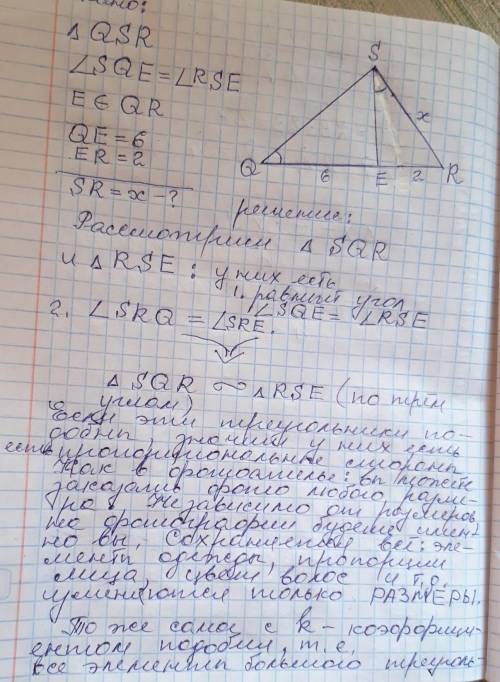 Дано:
Δ QSR
∠SQE = ∠RSE
E ∈ QR
QE = 6
ER = 2
SR = x - ?
S
x
Q
6
E
2
R
решение:
Рассмотрим Δ SQR
и Δ RSE : у них есть
1. равный угол
∠SQE = ∠RSE
2. ∠SRQ = ∠SRE.
Δ SQR ∾ Δ RSE (по трем
углам)
Если эти треугольники по-
добны, значит у них есть
есть пропорциональные стороны
Как в фотоателье: вы можете
заказать фото любого разме-
ра. Независимо от размеров
на фотографии будете имен-
но вы. Сохраняется всё: эле-
менты одежды, пропорции
лица, цвет волос и т.д.
изменяются только РАЗМЕРЫ.
То же самое с k - коэффици-
ентом подобия, т.е.
все элементы большого треуголь-